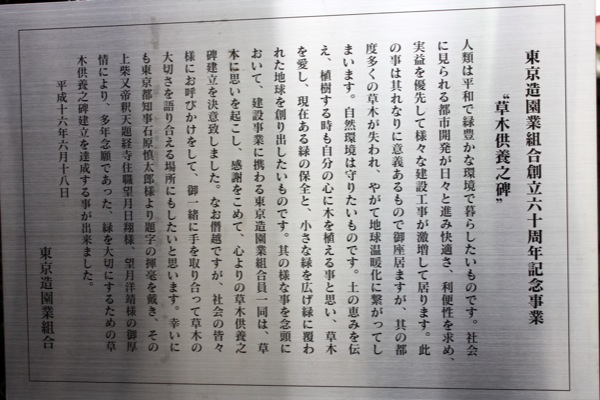 東京造園業組合創立六十周年記念事業
“草木供養之碑”
人類は平和で緑豊かな環境で暮らしたいものです。社会
に見られる都市開発が日々と進み快適さ、利便性を求め、
実益を優先して様々な建設工事が激増して居ります。此
の事は其れなりに意義あるもので御座居ますが、其の都
度多くの草木が失われ、やがて地球温暖化に繋がってし
まいます。自然環境は守りたいものです。土の恵みを伝
え、植樹する時も自分の心に木を植える事と思い、草木
を愛し、現在ある緑の保全と、小さな緑を広げ緑に覆わ
れた地球を創り出したいものです。其の様な事を念頭に
おいて、建設事業に携わる東京造園業組合員一同は、草
木に思いを起こし、感謝をこめて、心よりの草木供養之
碑建立を決意致しました。なお僭越ですが、社会の皆々
様にお呼びかけをして、御一緒に手を取り合って草木の
大切さを語り合える場所にもしたいと思います。幸いに
も東京都知事石原慎太郎様より題字の揮毫を戴き、その
上柴又帝釈天題経寺住職望月日翔様、望月洋靖様の御厚
情により、多年念願であった、緑を大切にするための草
木供養之碑建立を達成する事が出来ました。
平成十六年六月十八日
東京造園業組合